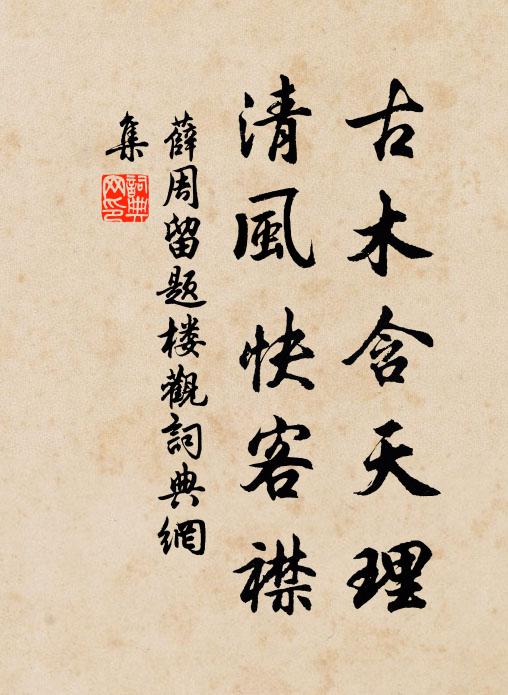 古木含天理
清風快客襟
薛周留题楼觀詞典網
集
詞典
网印